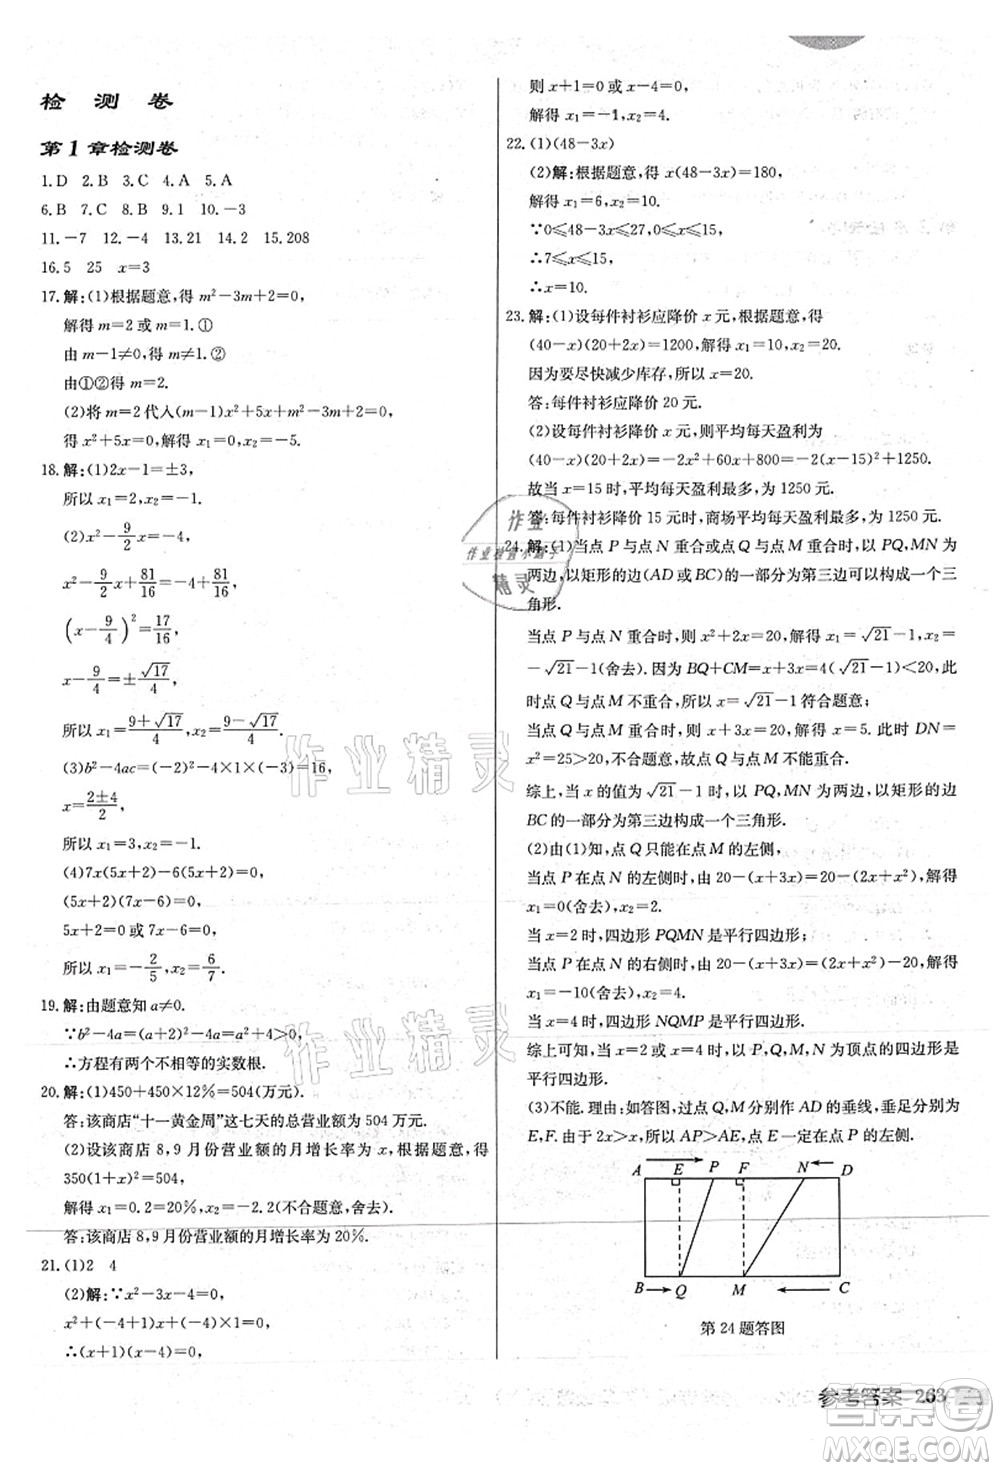 检 测 卷
第1章检测卷
1.D 2.B 3.C 4.A 5.A
6.B 7.C 8.B 9.1 10.-3
11.-7 12.-4 13.21 14.2 15.208
16.5 25 x=3
17.解:(1)根据题意,得 m²-3m+2=0,
解得 m=2 或 m=1.①
由 m-1≠0,得 m≠1.②
由①②得 m=2.
(2)将 m=2 代入(m-1)x²+5x+m²-3m+2=0,
得 x²+5x=0,解得 x₁=0,x₂=-5.
18.解:(1)2x-1=±3,
所以 x₁=2,x₂=-1.
(2)x²-9/2x=-4,
x²-9/2x+81/16=-4+81/16,
(x-9/4)²=17/16,
x-9/4=±√17/4,
所以 x₁=(9+√17)/4,x₂=(9-√17)/4.
(3)b²-4ac=(-2)²-4×1×(-3)=16,
x=(2±4)/2,
所以 x₁=3,x₂=-1.
(4)7x(5x+2)-6(5x+2)=0,
(5x+2)(7x-6)=0,
5x+2=0 或 7x-6=0,
所以 x₁=-2/5,x₂=6/7.
19.解:由题意知 a≠0.
∵b²-4a=(a+2)²-4a=a²+4>0,
∴方程有两个不相等的实数根.
20.解:(1)450+450×12%=504(万元).
答:该商店“十一黄金周”这七天的总营业额为 504 万元.
(2)设该商店 8,9 月份营业额的月增长率为 x,得
350(1+x)²=504,
解得 x₁=0.2=20%,x₂=-2.2(不合题意,舍去).
答:该商店 8,9 月份营业额的月增长率为 20%.
21.(1)2 4
(2)解:∵x²-3x-4=0,
x²+(-4+1)x+(-4)×1=0,
∴(x+1)(x-4)=0,
则 x+1=0 或 x-4=0,
解得 x₁=-1,x₂=4.
22.(1)(48-3x)
(2)解:根据题意,得 x(48-3x)=180,
解得 x₁=6,x₂=10.
∵0≤48-3x≤27,0≤x≤15,
∴7≤x≤15,
∴x=10.
23.解:(1)设每件衬衫应降价 x 元,根据题意,得
(40-x)(20+2x)=1200,解得 x₁=10,x₂=20.
因为要尽快减少库存,所以 x=20.
答:每件衬衫应降价 20 元.
(2)设每件衬衫降价 x 元,则平均每天盈利为
(40-x)(20+2x)=-2x²+60x+800=-2(x-15)²+1250.
故当 x=15 时,平均每天盈利最多,为 1250 元.
答:每件衬衫降价 15 元时,商场平均每天盈利最多,为 1250 元.
24.解:(1)当点 P 与点 N 重合或点 Q 与点 M 重合时,以 PQ,MN 为
两边,以矩形的边(AD 或 BC)的一部分为第三边可以构成一个三
角形.
当点 P 与点 N 重合时,则 x²+2x=20,解得 x₁=√21-1,x₂=
-√21-1(舍去).因为 BQ+CM=x+3x=4(√21-1)<20,此
时点 Q 与点 M 不重合,所以 x=√21-1 符合题意;
当点 Q 与点 M 重合时,则 x+3x=20,解得 x=5.此时 DN=
x²=25>20,不合题意,故点 Q 与点 M 不能重合.
综上,当 x 的值为√21-1 时,以 PQ,MN 为两边,以矩形的边
BC 的一部分为第三边构成一个三角形.
(2)由(1)知,点 Q 只能在点 M 的左侧,
当点 P 在点 N 的左侧时,由 20-(x+3x)=20-(2x+x²),解得
x₁=0(舍去),x₂=2.
当 x=2 时,四边形 PQMN 是平行四边形;
当点 P 在点 N 的右侧时,由 20-(x+3x)=(2x+x²)-20,解得
x₁=-10(舍去),x₂=4.
当 x=4 时,四边形 NQMP 是平行四边形.
综上可知,当 x=2 或 x=4 时,以 P,Q,M,N 为顶点的四边形是
平行四边形.
(3)不能.理由:如答图,过点 Q,M 分别作 AD 的垂线,垂足分别为
E,F.由于 2x>x,所以 AP>AE,点 E 一定在点 P 的左侧.
A E P F N D
B Q M C
第 24 题答图
参考答案 263
作业
作业检查小助手
精灵
作业精灵
作业精灵
答案圈
MXQE.COM